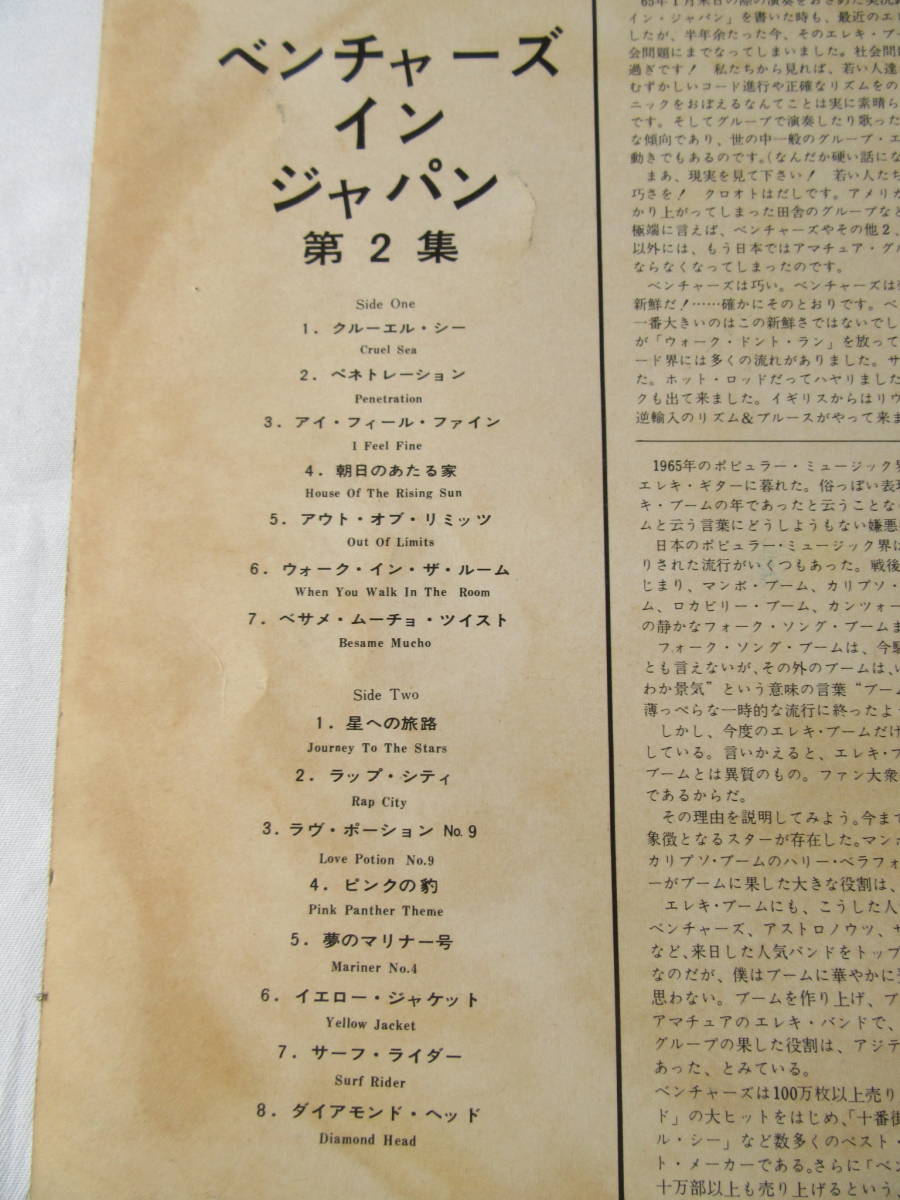 ベンチャーズ
イン
ジャパン
第2集
Side One
1. クルーエル・シー
Cruel Sea
2. ペネトレーション
Penetration
3. アイ・フィール・ファイン
I Feel Fine
4. 朝日のあたる家
House Of The Rising Sun
5. アウト・オブ・リミッツ
Out Of Limits
6. ウォーク・イン・ザ・ルーム
When You Walk In The Room
7. ベサメ・ムーチョ・ツイスト
Besame Mucho
Side Two
1. 星への旅路
Journey To The Stars
2. ラップ・シティ
Rap City
3. ラヴ・ポーション No.9
Love Potion No.9
4. ピンクの豹
Pink Panther Theme
5. 夢のマリナー号
Mariner No.4
6. イエロー・ジャケット
Yellow Jacket
7. サーフ・ライダー
Surf Rider
8. ダイアモンド・ヘッド
Diamond Head
イン・ジャパン」を書いた時も、最近のエレ
したが、半年余たった今、そのエレキ・ブー
会問題にまでなってしまいました。社会問
過ぎです! 私たちから見れば、若い人達
むずかしいコード進行や正確なリズムをの
ニックをおぼえるなんてことは実に素晴ら
です。そしてグループで演奏したり歌った
な傾向であり、世の中一般のグループ・エ
動きでもあるのです。(なんだか硬い話にな
まあ、現実を見て下さい! 若い人たち
巧さを! クロオトはだしです。アメリカ
かり上がってしまった田舎のグループなど
極端に言えば、ベンチャーズやその他2、
以外には、もう日本ではアマチュア・グル
ならなくなってしまったのです。
ベンチャーズは巧い。ベンチャーズは
新鮮だ!……確かにそのとおりです。ベ
一番大きいのはこの新鮮さではないでし
が「ウォーク・ドント・ラン」を放って
ード界には多くの流れがありました。サ
た。ホット・ロッドだってハヤりました
クも出て来ました。イギリスからはリヴ
逆輸入のリズム&ブルースがやって来ま
1965年のポピュラー・ミュージック界
エレキ・ギターに暮れた。俗っぽい表現
キ・ブームの年であったと云うことな
ムと云う言葉にどうしようもない嫌悪
日本のポピュラー・ミュージック界に
りされた流行がいくつもあった。戦後
じまり、マンボ・ブーム、カリプソ・
ム、ロカビリー・ブーム、カンツォー
の静かなフォーク・ソング・ブームま
フォーク・ソング・ブームは、今騒
とも言えないが、その外のブームは、い
わか景気"という意味の言葉"ブー
薄っぺらな一時的な流行に終ったよう
しかし、今度のエレキ・ブームだけ
している。言いかえると、エレキ・ブ
ブームとは異質のもの。ファン大衆
であるからだ。
その理由を説明してみよう。今まで
象徴となるスターが存在した。マンボ
カリプソ・ブームのハリー・ベラフォ
ーがブームに果した大きな役割は、
エレキ・ブームにも、こうした人
ベンチャーズ、アストロノウツ、サ
など、来日した人気バンドをトップ
なのだが、僕はブームに華やかに
思わない。ブームを作り上げ、ブ
アマチュアのエレキ・バンドで、
グループの果した役割は、アジテ
あった、とみている。
ベンチャーズは100万枚以上売り
ド」の大ヒットをはじめ、「十番街
ル・シー」など数多くのベスト・
ト・メーカーである。さらに「ベン
十万部以上も売り上げるという、